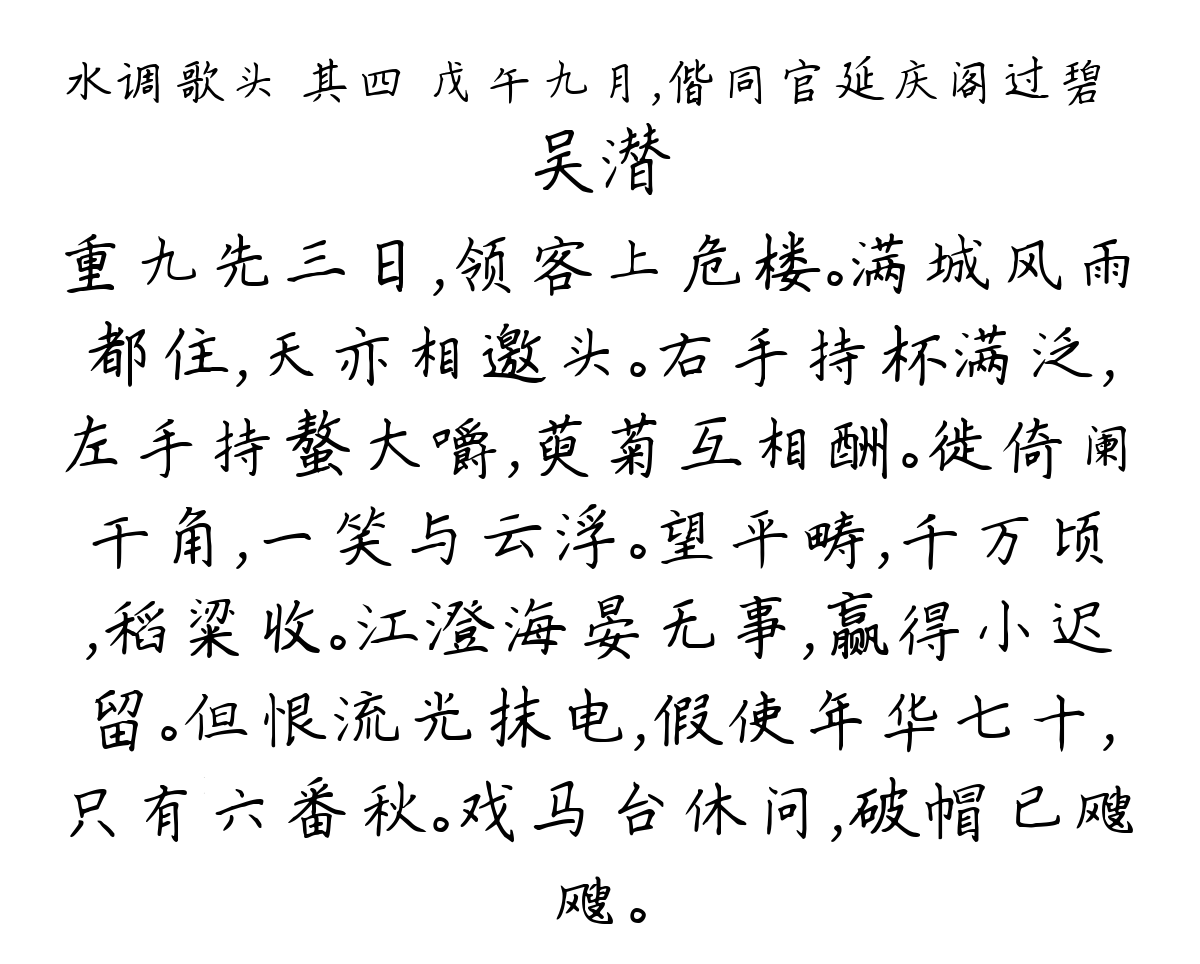 水调歌头 其四 戊午九月,偕同官延庆阁过碧
吴潜
重九先三日,领客上危楼。满城风雨
都住,天亦相邀头。右手持杯满泛,
左手持螯大嚼,萸菊互相酬。徙倚阑
干角,一笑与云浮。望平畴,千万顷
,稻粱收。江澄海晏无事,赢得小迟
留。但恨流光抹电,假使年华七十,
只有六番秋。戏马台休问,破帽已飕
飕。